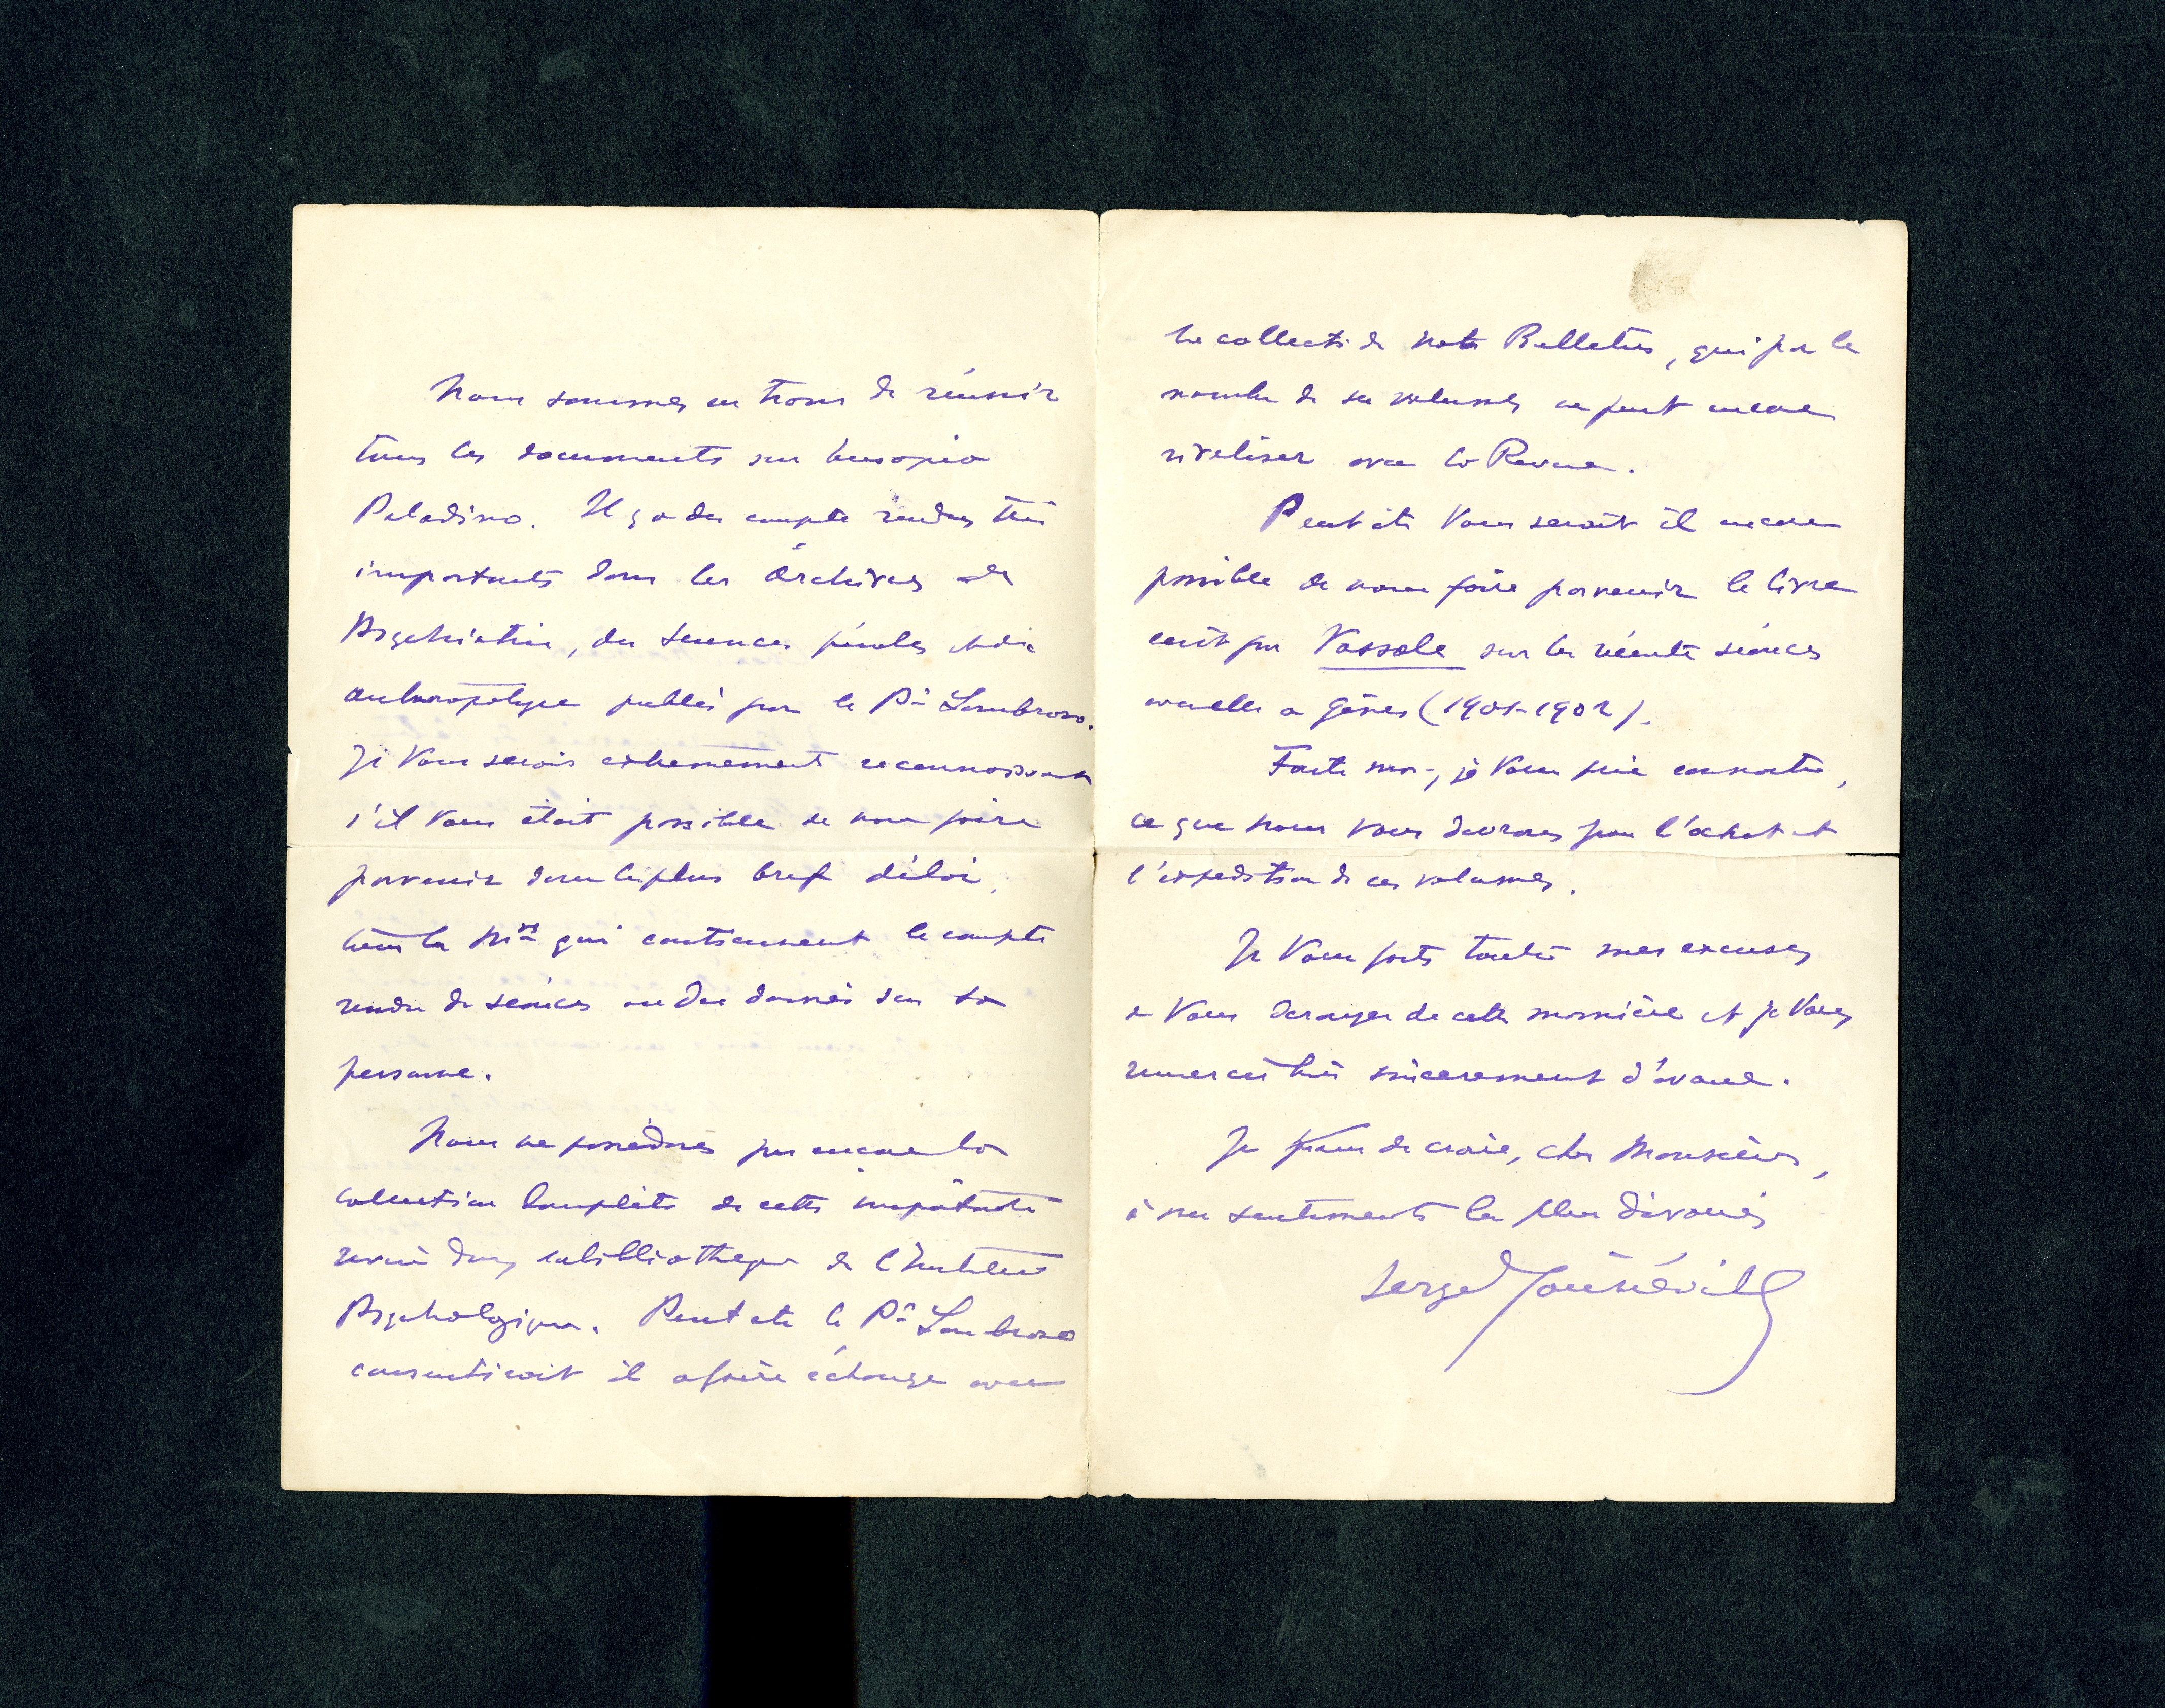 Nous sommes en train de réunir
tous les documents sur Eusapia
Paladino. Il y a des compte rendus très
importants dans les Archives de
Psychiatrie, des sciences pénales et de
anthropologie publiés par le Pr Lombroso.
Je Vous serais extremement reconnaissant
s'il Vous était possible de nous faire
parvenir dans le plus bref délai,
tous les Nos qui contiennent le compte
rendu de séances ou des données sur sa
personne.
Nous ne possédons pas encore la
collection complète de cette importante
revue dans la bibliothèque de l'Institut
Psychologique. Peut etre le Pr Lombroso
consentirait il a faire échange avec
la collect. de notre Bulletin, qui par le
nombre de ses volumes ne peut encore
rivaliser avec la Revue.
Peut etre Vous serait il encore
possible de nous faire parvenir le livre
écrit par Vassalo sur les récente séances
a Gênes (1901-1902).
Faite moi, je Vous prie connaitre,
ce que nous Vous devrons pour l'achat et
l'expedition de ces volumes.
Je Vous fais toutes mes excuses
de Vous deranger de cette manière et je Vous
remercie très sincerement d'avance.
Je Vous de croire, cher Monsieur,
à mes sentiments les plus dévoués
Serge Youriévitch